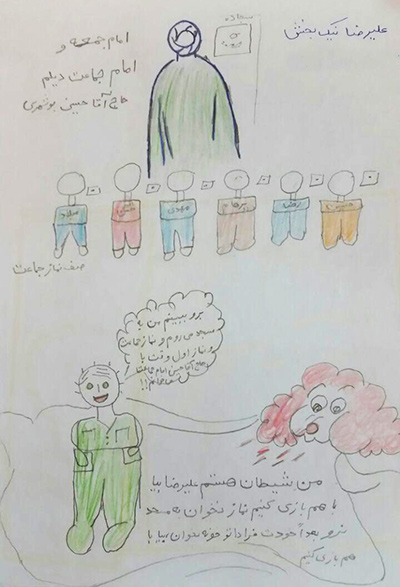 علیرضا نیک بخش
سجاده
امام جمعه و
امام جماعت دیلم
حاج آقا حسین بوشهری
میلاد
مهدی
رضا
حسین
صف نماز جماعت
برو ببینم من به
مسجد می روم و نماز جماعت
و نماز اول وقت با
حاج آقا حسین امام جماعت
من شیطان هستم علیرضا بیا
با هم بازی کنیم نماز نخوان مسجد
نرو بعداً خودت فرادا تو خونه بخوان بیا با
هم بازی کنیم